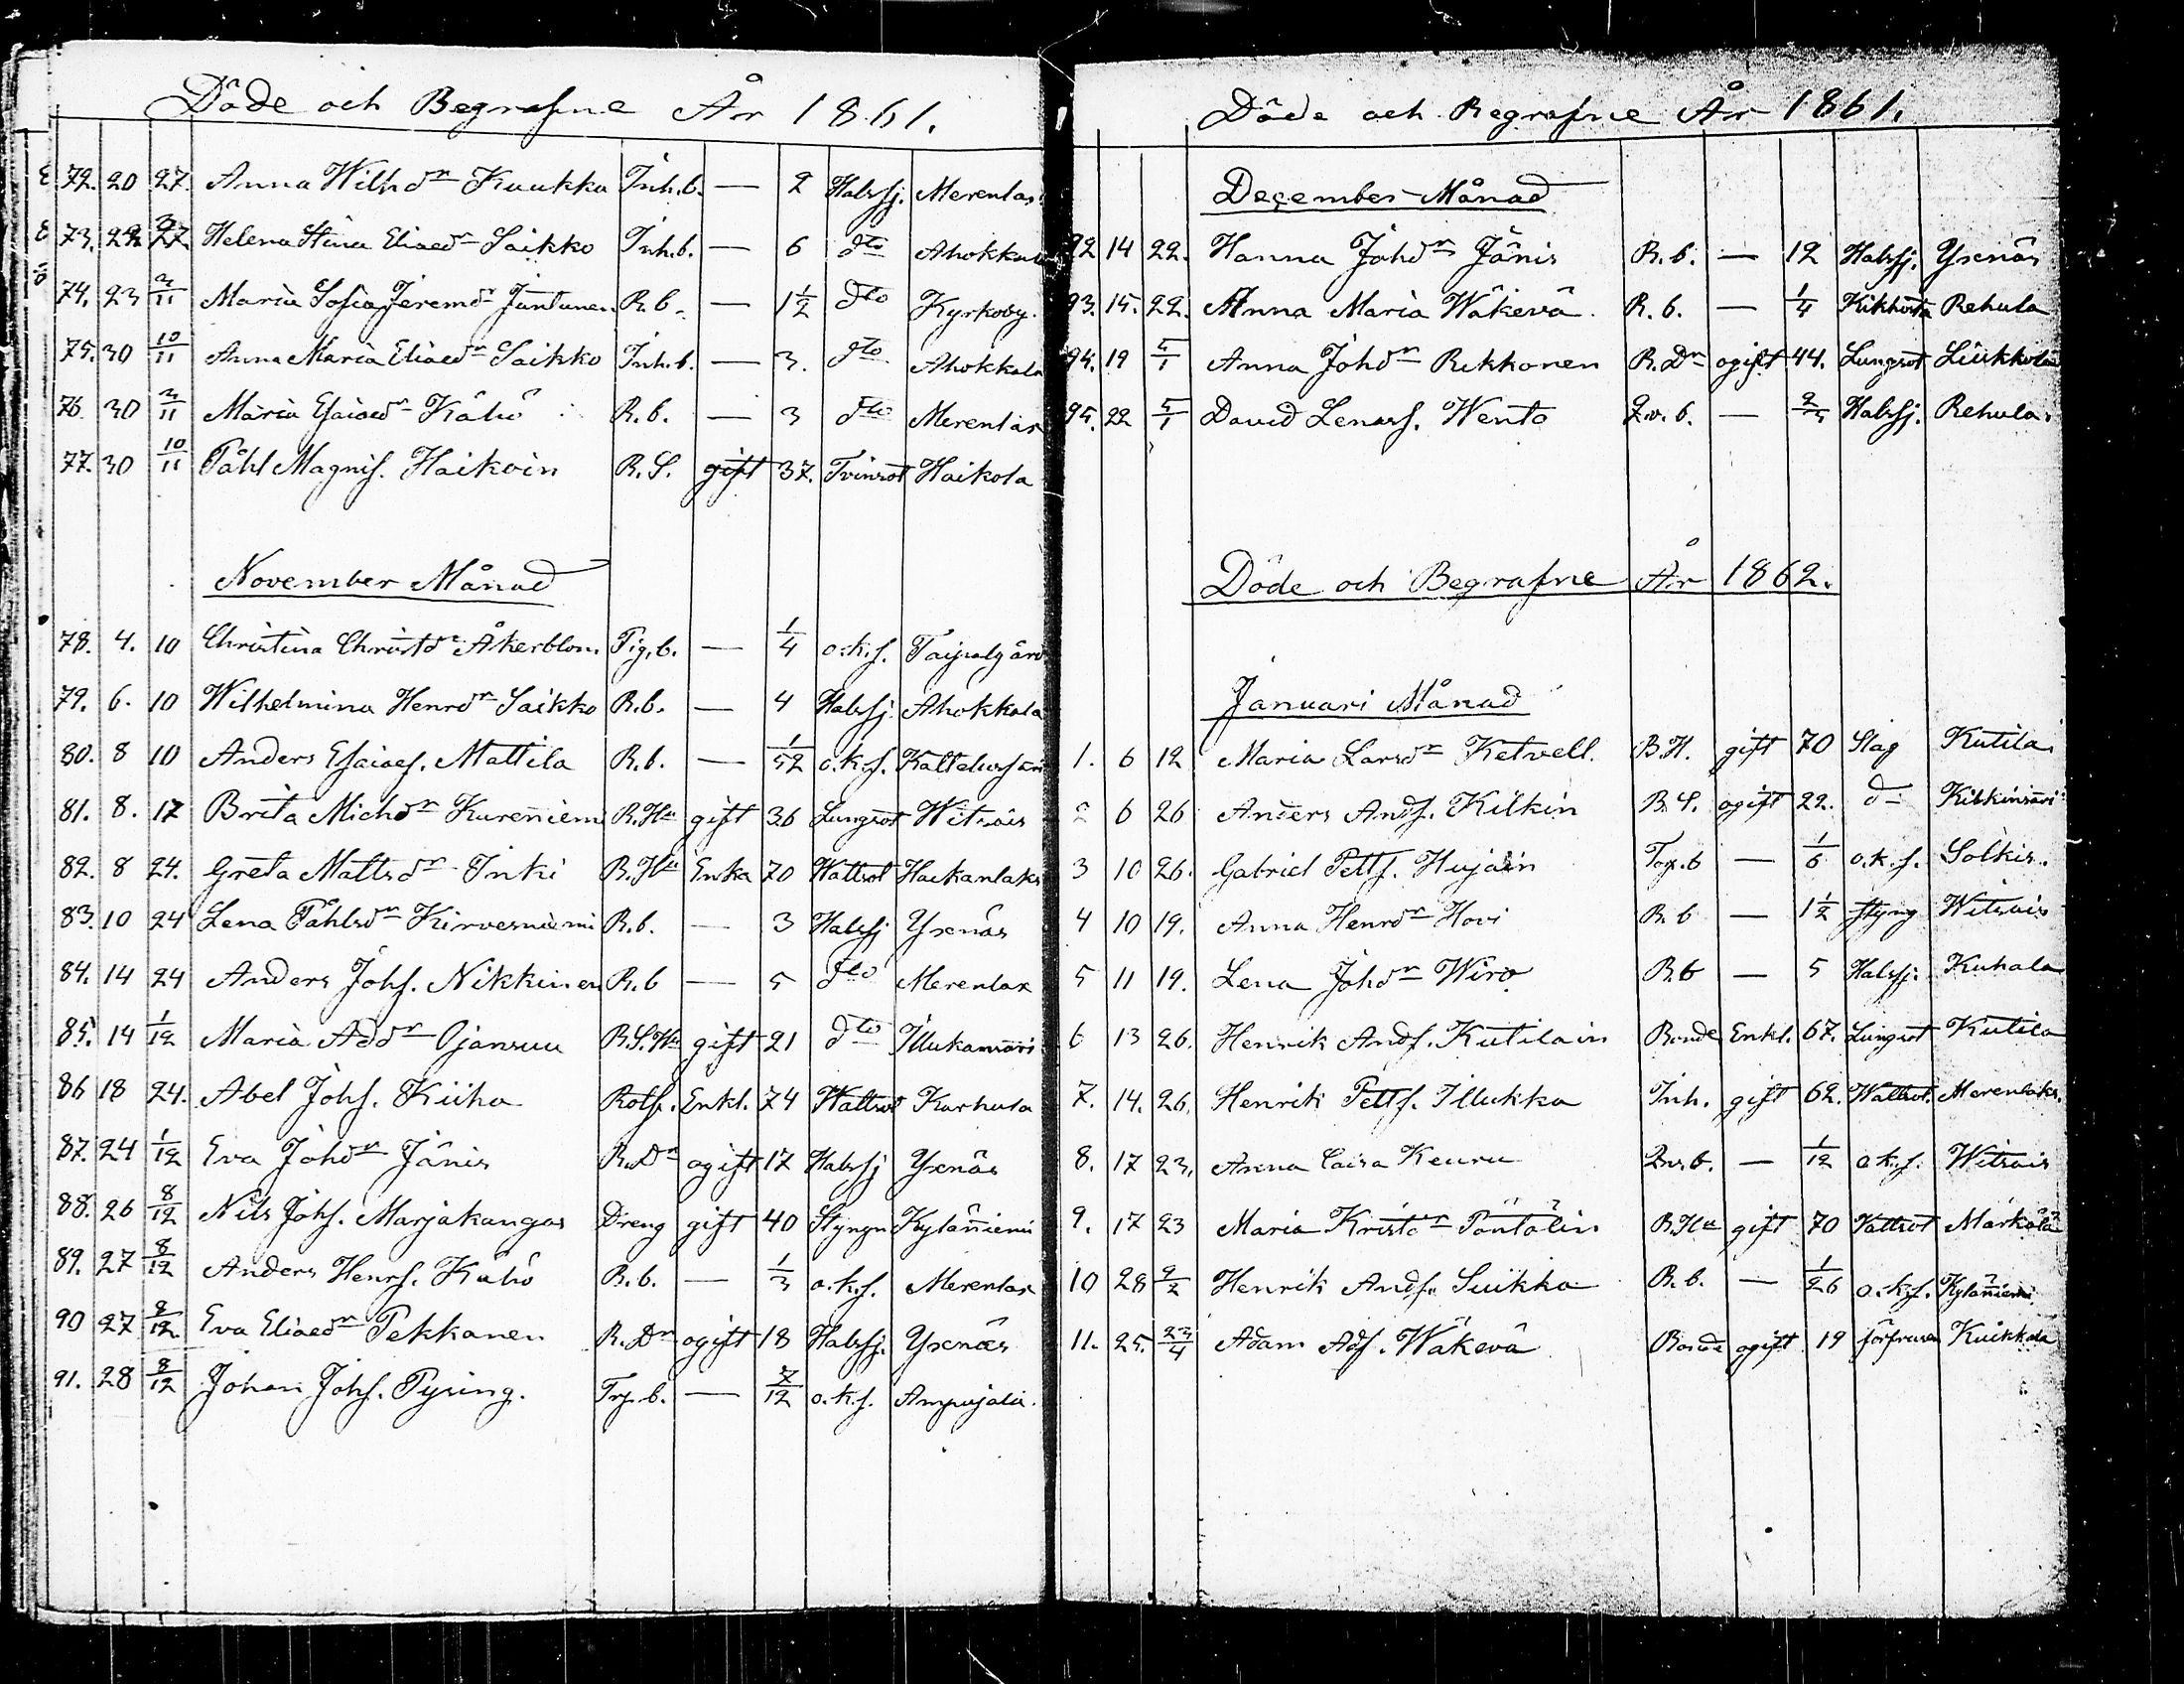 Döde och Begrafne År 1861.
72. 20 27. Anna Wilhdr Kuukka Inh.b. — 2 Halssj. Merenlax
73. 22 27 Helena Stina Eliaedr Saikko Inh.b. — 6 dto Ahokkala
74. 23 3/11 Maria Sofia Jeremdr Juntunen R.b. — 1½ dto Kyrkoby.
75. 30 10/11 Anna Maria Eliaedr Saikko Inh.b. — 3. dto Ahokkala
76. 30 3/11 Maria Esaiaedr Kähö R.b. — 3 dto Merenlax
77. 30 10/11 Påhl Magnis. Haikoin R.S. gift 37. Tvinsot Haikola
November Månad
78. 4. 10 Christina Christdr Åkerblom. Pig.b. — 1/4 o.k.s. Taipalgård
79. 6. 10 Wilhelmina Henrdr Saikko R.b. — 4 Halssj. Ahokkala
80. 8 10 Anders Esaiaes. Mattila R.b. — 1/52 o.k.s.
81. 8. 17 Brita Michdr Kureniemi R.Hu gift 36 Lungsot Witsais
82. 8 24. Greta Mattsdr Inki R.Hu Enka 70 Wattsot Haekanlaks
83. 10 24 Lena Påhlsdr Kirvesniemi R.b. — 3 Halssj Yxenäs
84. 14 24 Anders Johs. Nikkinen R.b — 5 dto Merenlax
85. 14 1/12 Maria Addr Ojansuu R.S.Hu gift 21 dto Illukansari
86 18 24. Abel Johs. Kiiha Rotf. Enkl. 74 Wattsot Karhula
87. 24 1/12 Eva Johdr Jänis R.Dr ogift 17 Halssj Yxenäs
88. 26 8/12 Nils Johs. Marjakangas Dreng gift 40 Styngn Kyläniemi
89. 27 8/12 Anders Henrs. Kähö R.b. — 1/3 o.k.s. Merenlax
90 27 8/12. Eva Eliaedr Pekkanen R.Dr ogift 18 Halssj. Yxenäs
91. 28 8/12 Johan Johs. Pysing. Trp.b. — 7/12 o.k.s. Ampujala.
Döde och Begrafne År 1861.
December Månad
92 14 22. Hanna Johdr Jänis R.b. — 12 Halssj. Yxenäs
93. 15. 22. Anna Maria Wäkevä. R.b. — 1/4 Kikhosta Rehula
94. 19 5/1 Anna Johdr Rekkonen R.Dr ogift 44. Lungsot Liukkola
95. 22 5/1 David Lenars. Wento — Halssj. Rehula.
Döde och Begrafne År 1862.
Januari Månad
1. 6 12 Maria Larsdr Ketvell. B.H. gift 70 Slag Kutila
2 6 26 Anders Ands. Kilkin B.S. ogift 22. d— Kilkinsari
3 10 26. Gabriel Petts. Hujain Torp.b — 1/6 o.k.s. Solkis.
4 10 19. Anna Henrdr Hovi R.b — 1½ styng Witsais
5 11 19. Lena Johdr Wiro R.b — 5 Halssj. Kuhala
6 13 26. Henrik Ands. Kutilain Bonde Enkl. 67. Lungsot Kutila
7. 14. 26. Henrik Petts. Illukka Inh. gift 62. Wattsot. Merenlaks.
8. 17 23. Anna Caisa Keuru — 1/12 o.k.s. Witsais
9. 17 23 Maria Kristdr Pöntölin B.Hu gift 70 Vattsot Märkälä
10 28 2/2 Henrik Ands. Suikka R.b. — 1/26 o.k.s. Kyläniemi.
11. 25. 23/4 Adam Ads. Wäkevä Bonde ogift 19 förfrusen Kuikkola